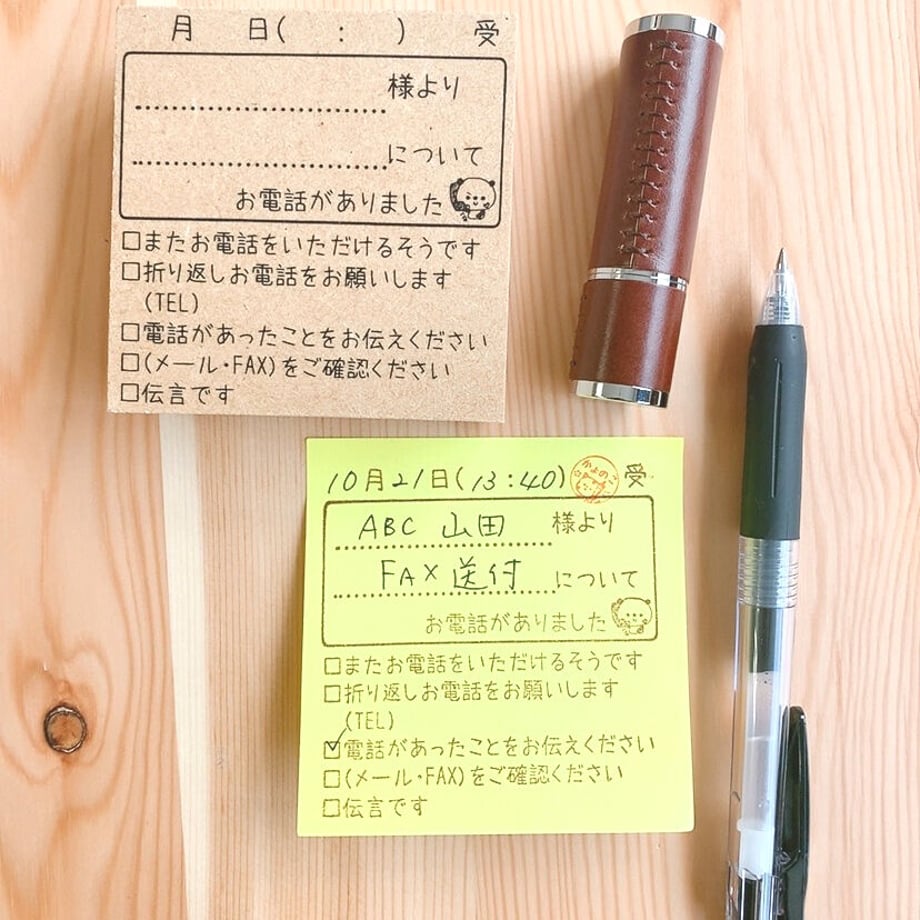 月 日( : ) 受
様より
について
お電話がありました
□またお電話をいただけるそうです
□折り返しお電話をお願いします
(TEL)
□電話があったことをお伝えください
□(メール・FAX)をご確認ください
□伝言です
10月21日(13:40) かよの 受
ABC 山田 様より
FAX 送付 について
お電話がありました
□またお電話をいただけるそうです
□折り返しお電話をお願いします
(TEL)
☑電話があったことをお伝えください
□(メール・FAX)をご確認ください
□伝言です